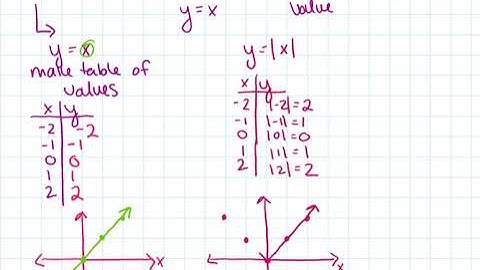 y = x
value
y = x
y = |x|
make table of
values
x | y
-2 | -2
-1 | -1
0 | 0
1 | 1
2 | 2
x | y
-2 | |-2| = 2
-1 | |-1| = 1
0 | |0| = 0
1 | |1| = 1
2 | |2| = 2
x
x